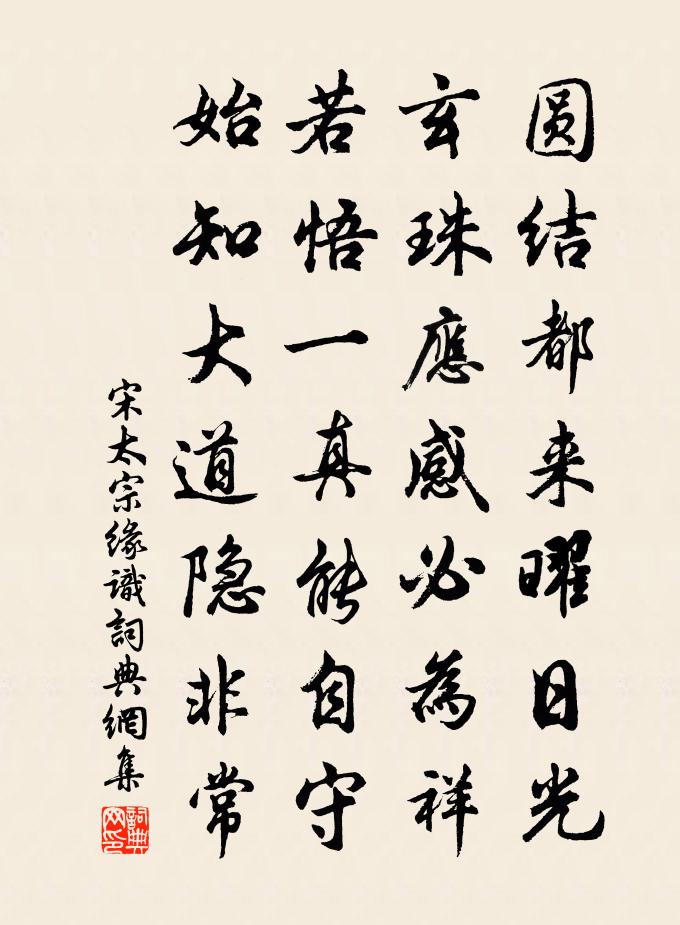 圆结都来曜日光
玄珠應感必為祥
若悟一真能自守
始知大道隐非常
宋太宗缘識詞典網集
詞典网印